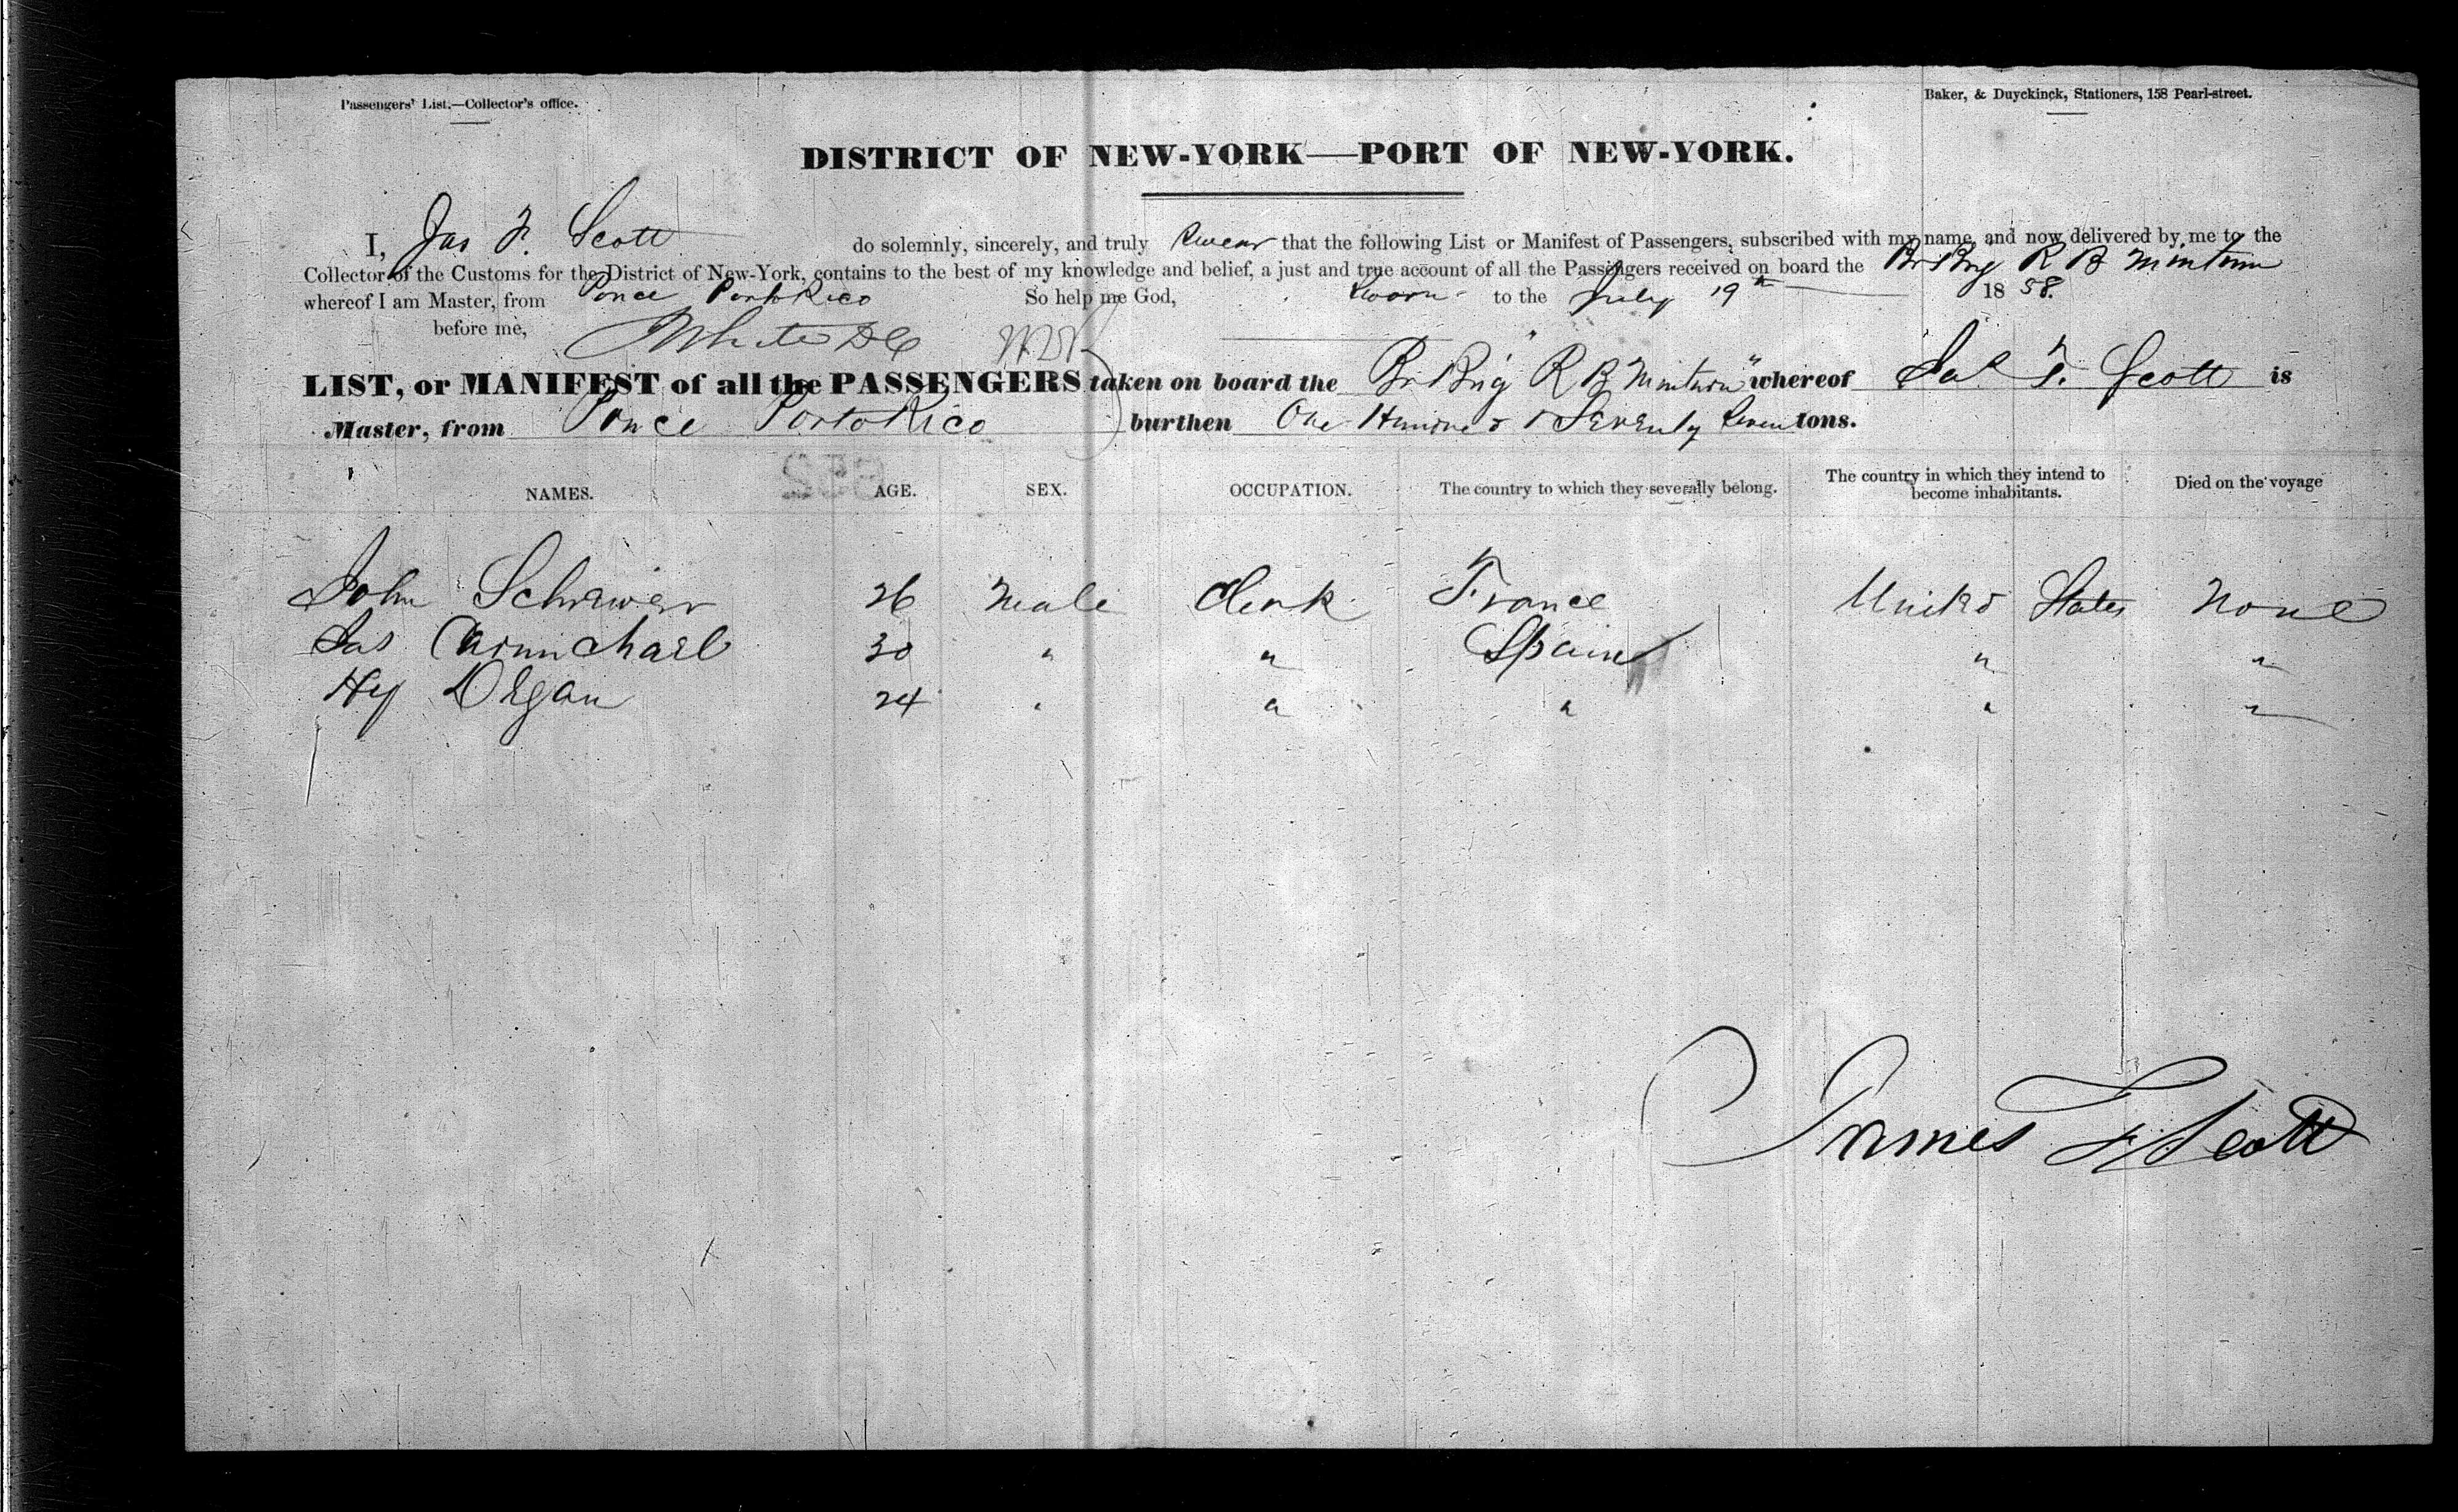 Passengers' List.—Collector's office.
Baker, & Duyckinck, Stationers, 158 Pearl-street.
DISTRICT OF NEW-YORK—PORT OF NEW-YORK.
I, Jas F. Scott do solemnly, sincerely, and truly Swear that the following List or Manifest of Passengers, subscribed with my name, and now delivered by me to the
Collector of the Customs for the District of New-York, contains to the best of my knowledge and belief, a just and true account of all the Passengers received on board the Br Brig R B Minturn
whereof I am Master, from Ponce Porto Rico So help me God, Sworn to the July 19th 1858.
before me, White DC
LIST, or MANIFEST of all the PASSENGERS taken on board the Br Brig "R B Minturn" whereof Jas F. Scott is
Master, from Ponce Porto Rico burthen One Hundred & Seventy Seven tons.
NAMES. AGE. SEX. OCCUPATION. The country to which they severally belong. The country in which they intend to become inhabitants. Died on the voyage
John 26 Male Clerk France United States None
Jas Carmichael 30 " " Spain " "
Hy Degan 24 " " " " "
James F Scott